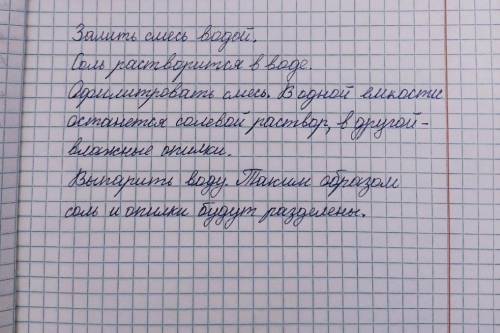 Залить смесь водой.
Соль растворится в воде.
Офильтровать смесь. В одной емкости
останется солевой раствор, в другой -
влажные опилки.
Выпарить воду. Таким образом
соль и опилки будут разделены.